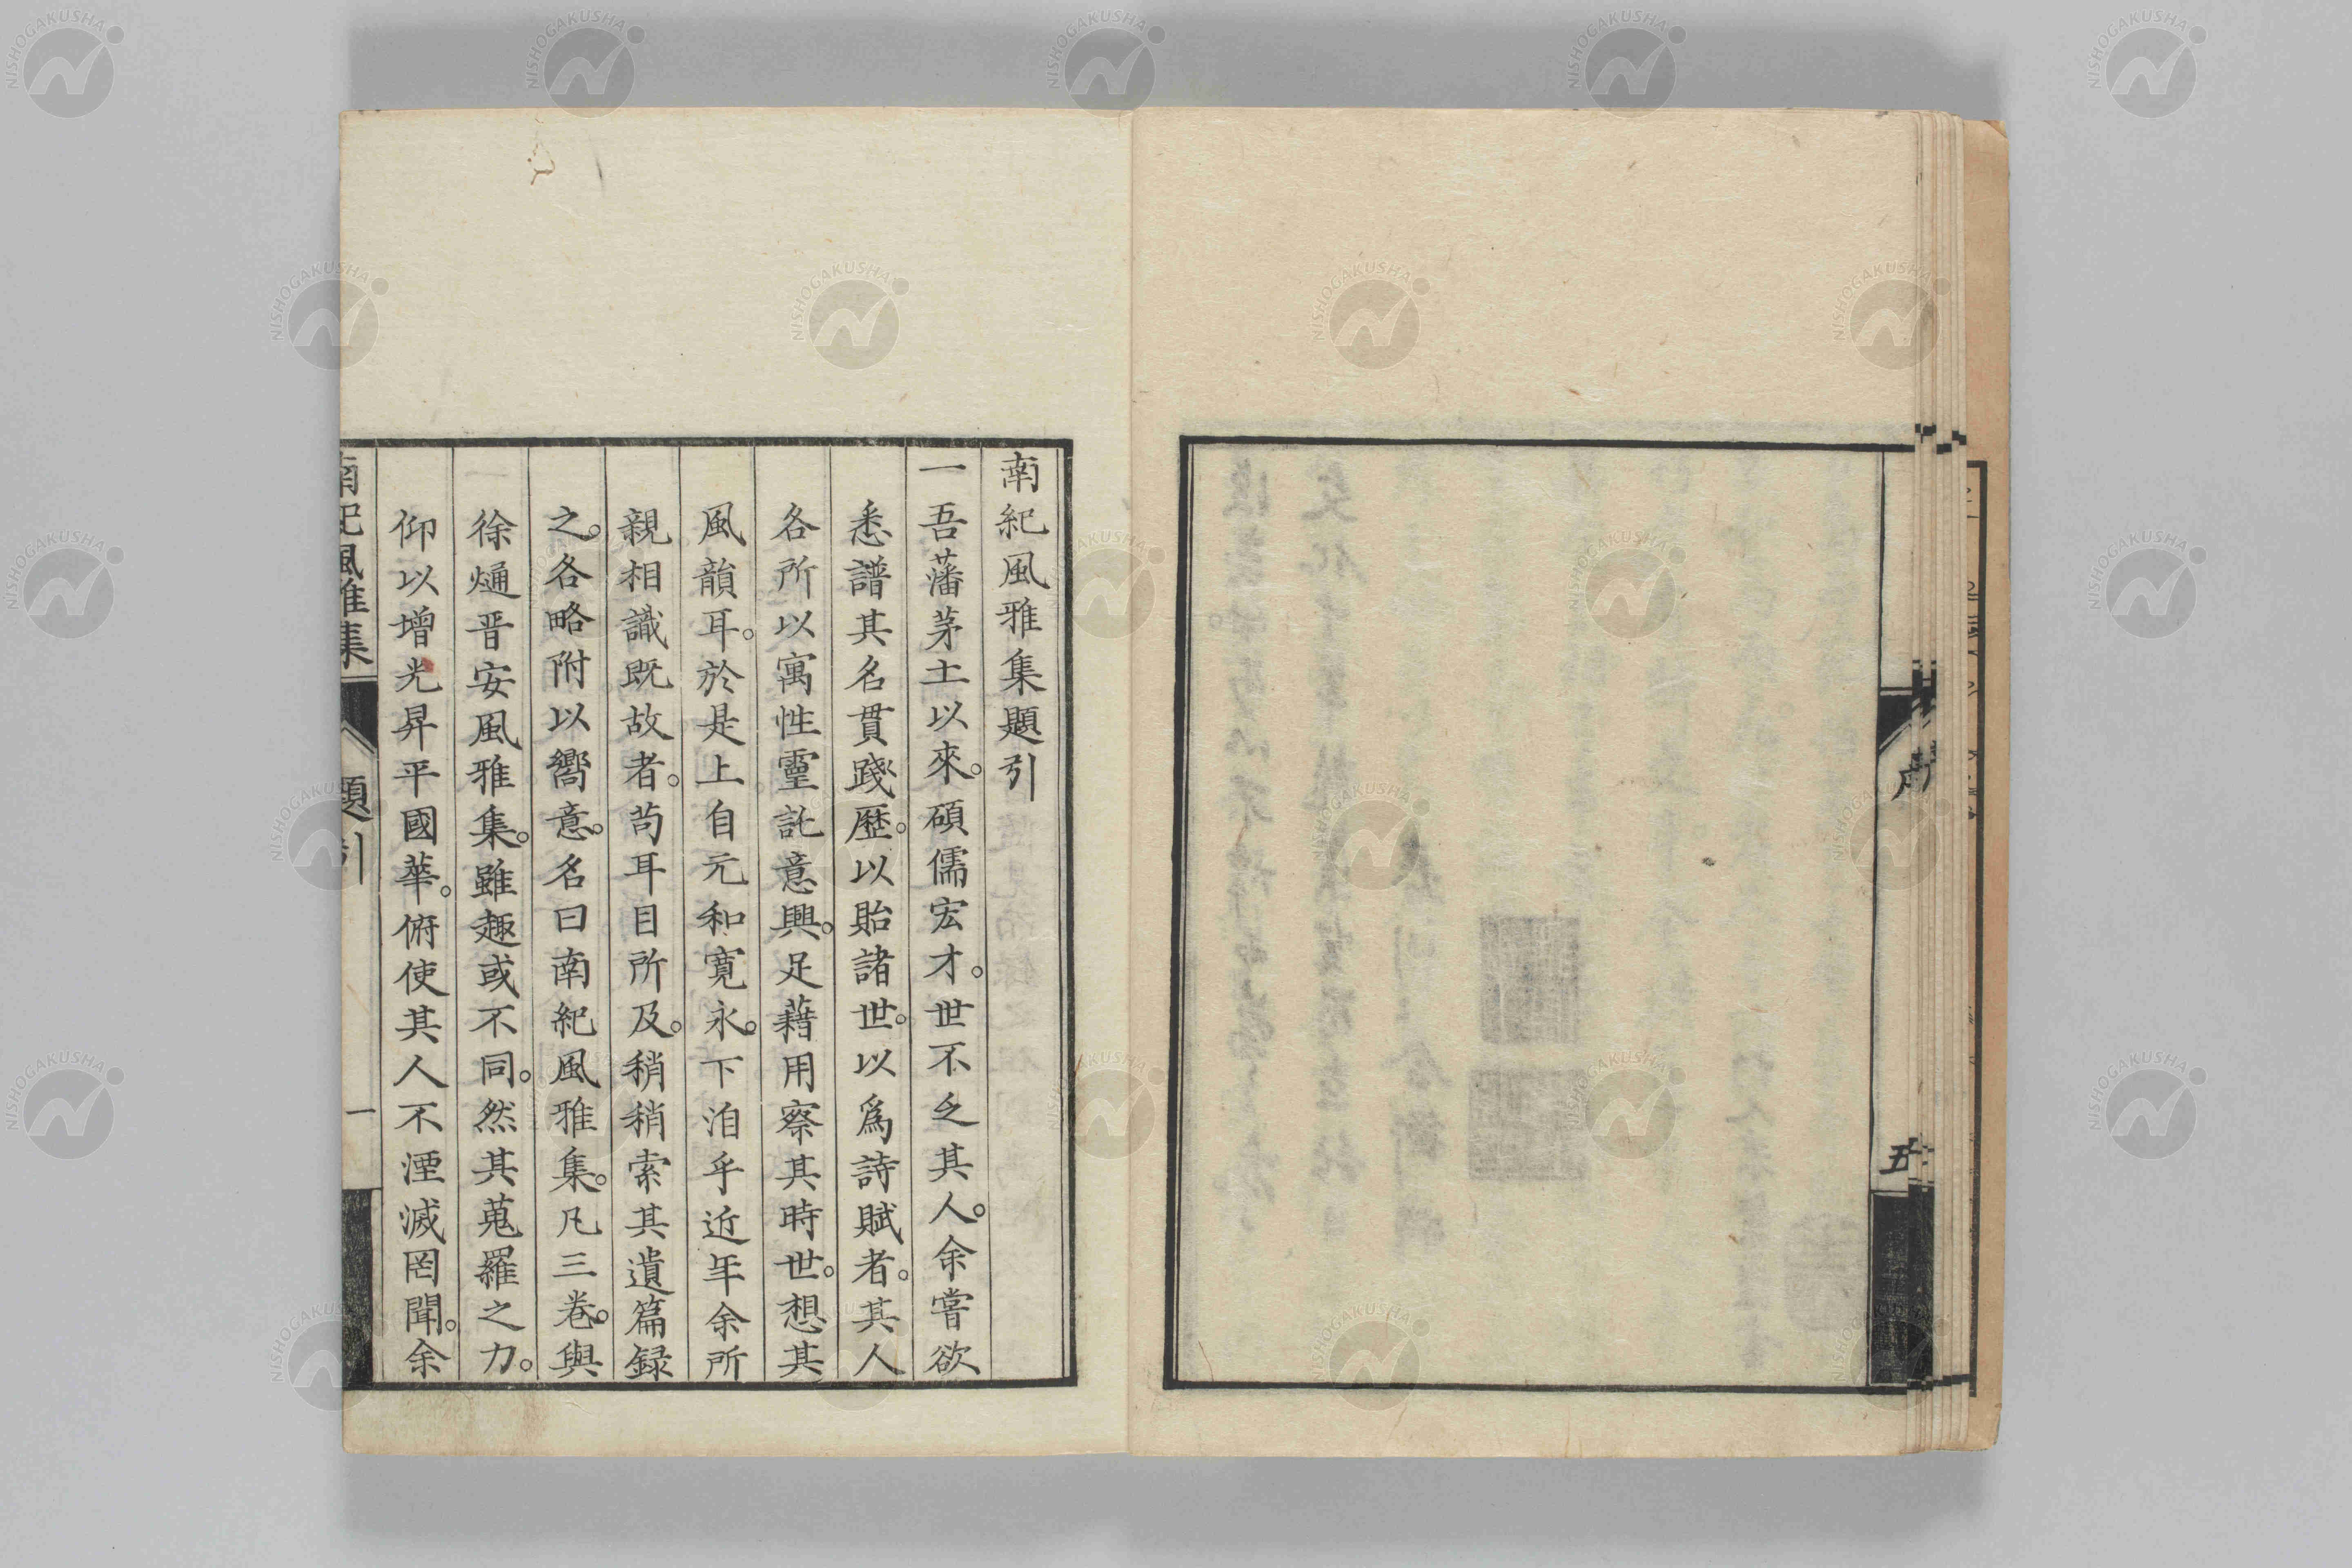 序
五
南紀風雅集題引
一吾藩茅土以來。碩儒宏才。世不乏其人。余嘗欲
悉譜其名貫踐歷。以貽諸世。以爲詩賦者。其人
各所以寓性靈託意興。足藉用察其時世。想其
風韻耳。於是上自元和寬永。下洎乎近年余所
親相識既故者。苟耳目所及。稍稍索其遺篇録
之。各略附以嚮意。名曰南紀風雅集。凡三卷。與
徐𤊹晋安風雅集。雖趣或不同。然其蒐羅之力。
仰以增光昇平國華。俯使其人不湮滅罔聞。余
南紀風雅集
題引
一
NISHOGAKUSHA